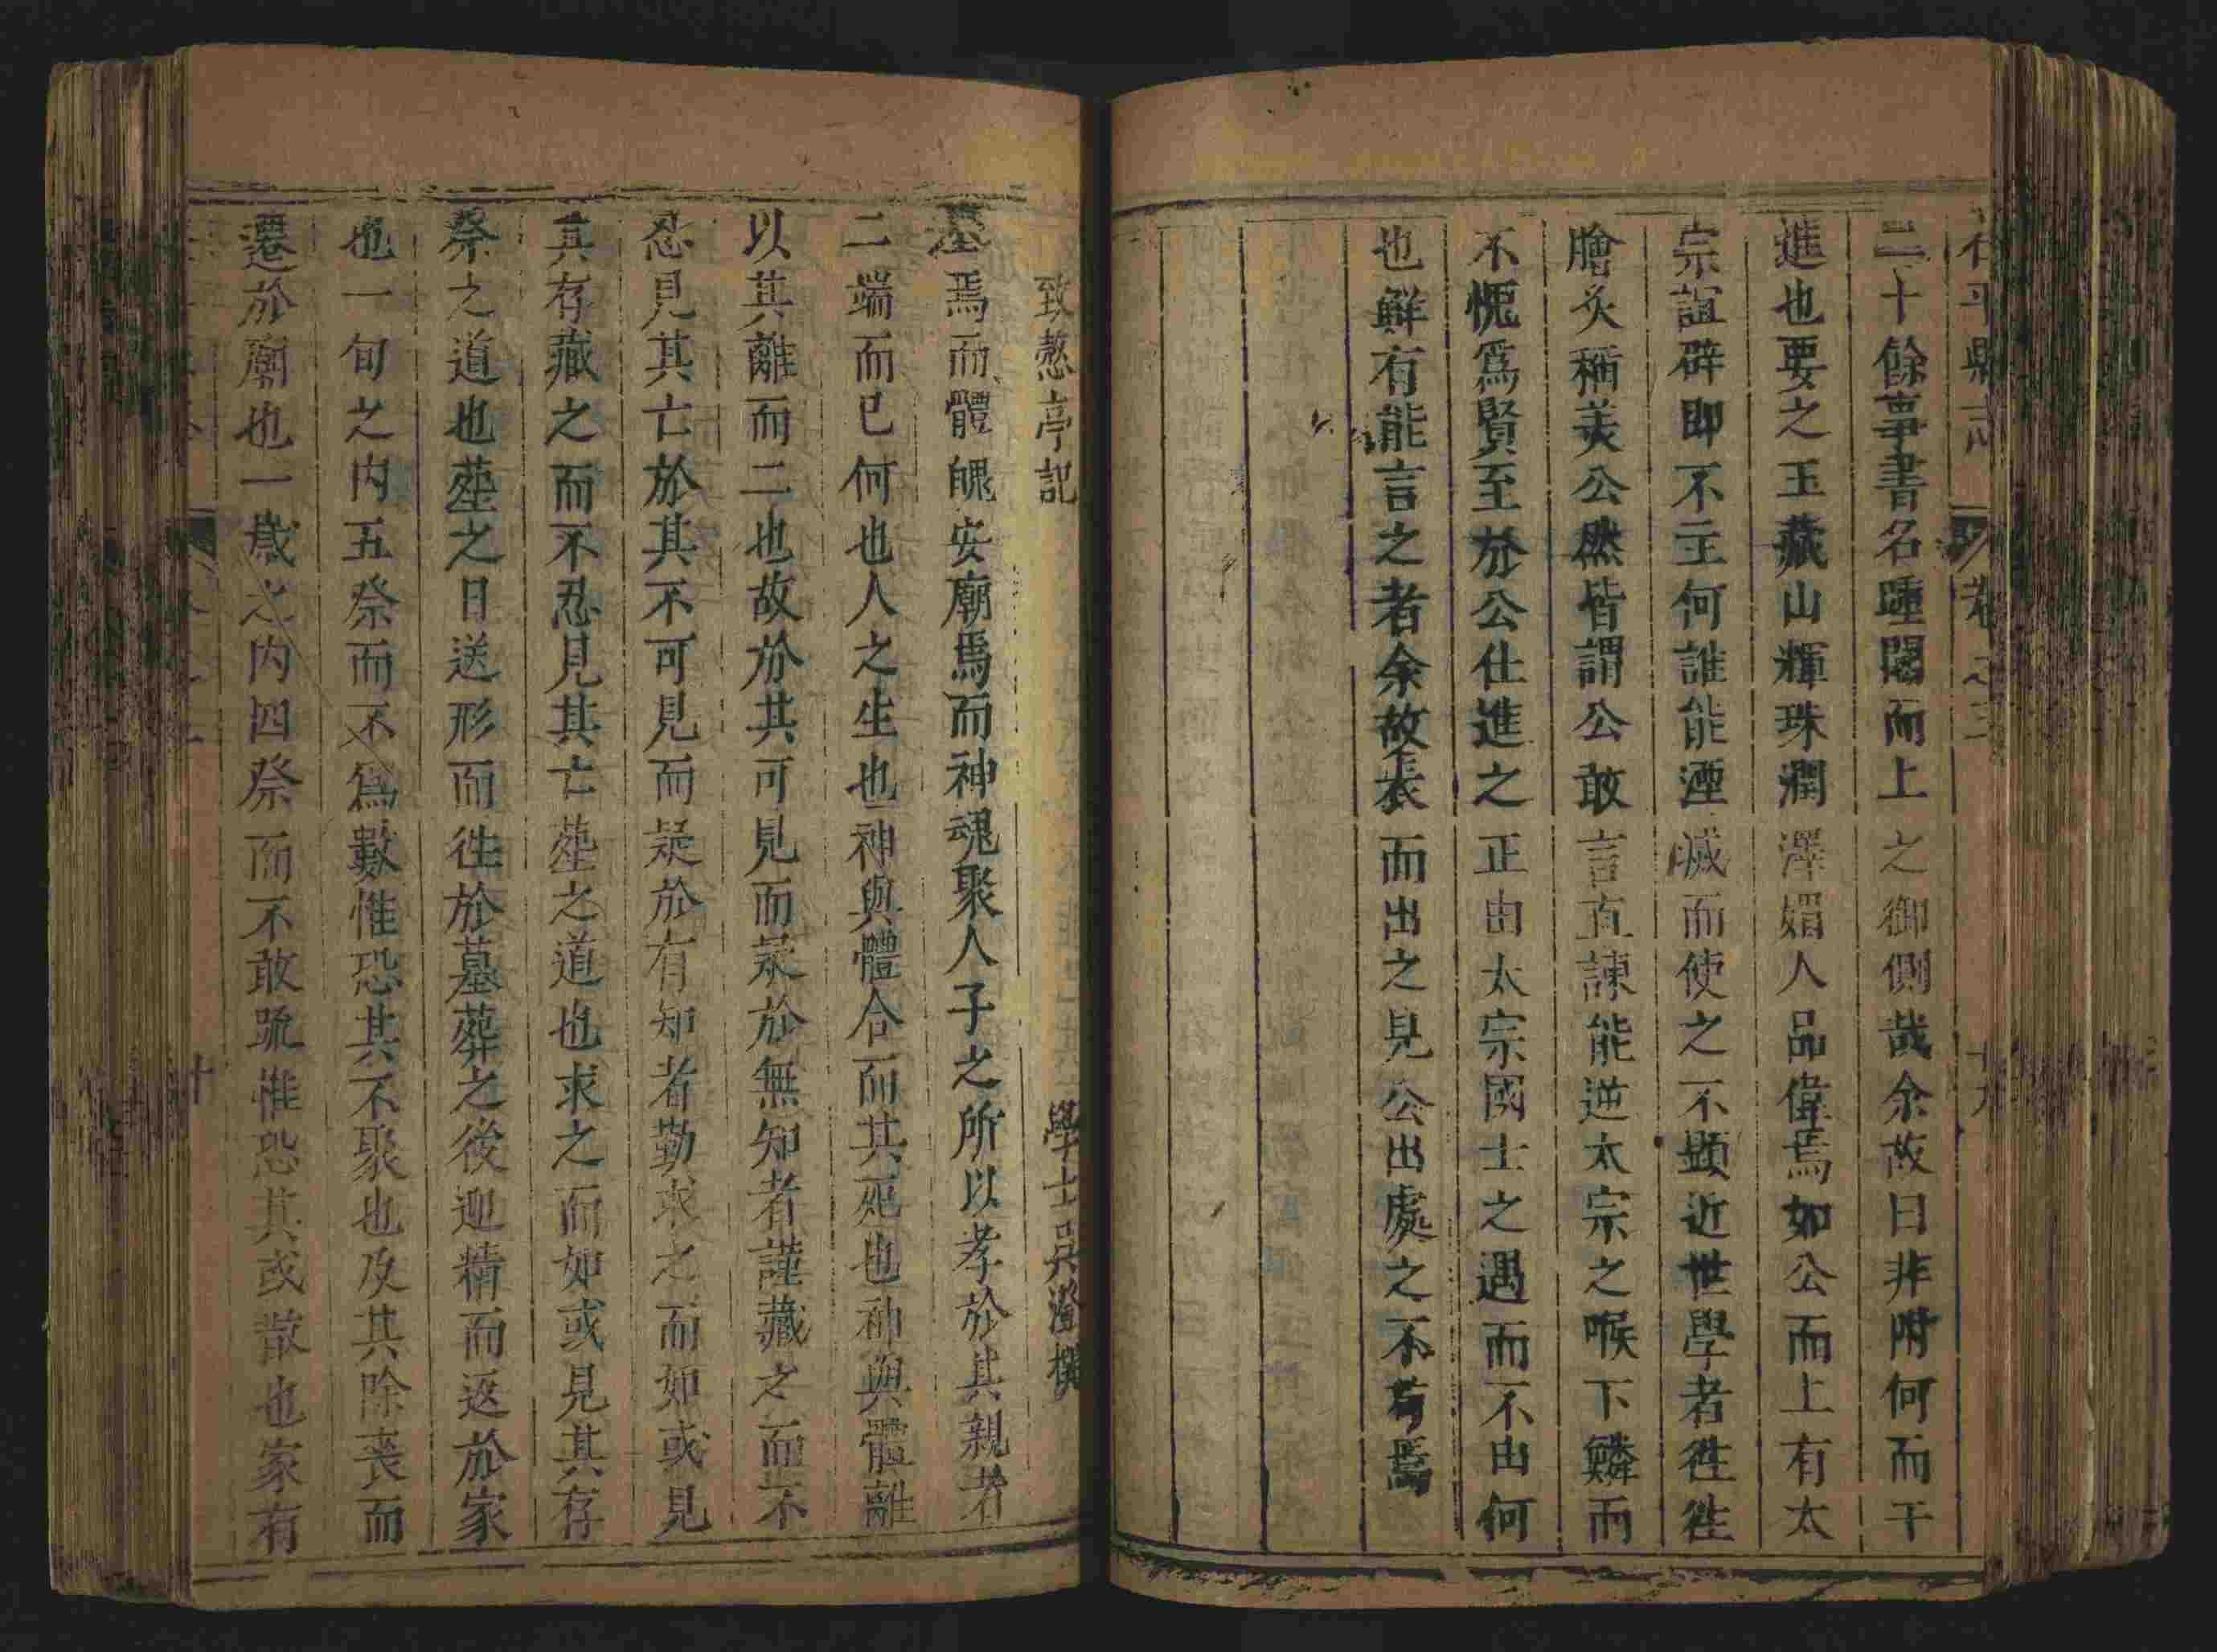 茌平縣志 卷之三 十九
二十餘事書名踵閣而上之御側哉余故曰非附何而干
進也要之玉藏山輝珠潤澤媚人品偉焉如公而上有太
宗誼辟即不主何誰能湮滅而使之不顯近世學者徃徃
膾炙稱美公然皆謂公敢言直諫能逆太宗之喉下鱗而
不愧爲賢至於公仕進之正由太宗國士之遇而不由何
也鮮有能言之者余故表而出之見公出處之不苟焉
致慤亭記 學士吳澄撰
墓焉而體魄安廟焉而神魂聚人子之所以孝於其親者
二端而已何也人之生也神與體合而其死也神與體離
以其離而二也故於其可見而疑於無知者謹藏之而不
忍見其亡於其不可見而疑於有知者勤求之而如或見
其存藏之而不忍見其亡塟之道也求之而如或見其存
祭之道也塟之日送形而徃於墓葬之後迎精而返於家
也一旬之内五祭而不爲數惟恐其不聚也及其除喪而
遷於廟也一歲之内四祭而不敢疏惟恐其或散也家有